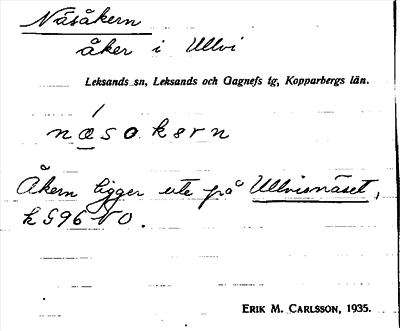 Näsåkern
åker i Ullvi
Leksands sn, Leksands och Gagnefs tg, Kopparbergs län.
næsokern
Åkern ligger ute på Ullvisnäset,
k 596 NO.
ERIK M. CARLSSON, 1935.